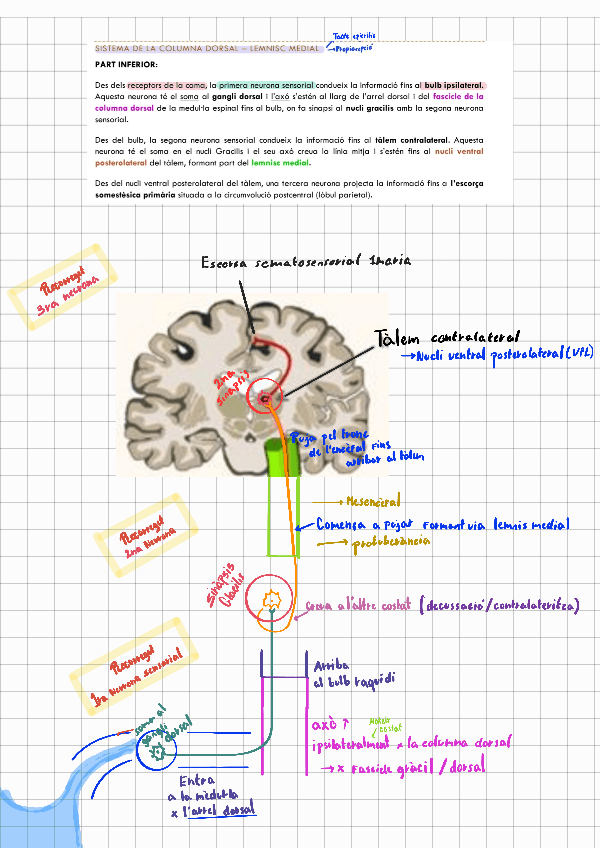 Tacte epicrític
SISTEMA DE LA COLUMNA DORSAL – LEMNISC MEDIAL
Propiocepció
PART INFERIOR:
Des dels receptors de la cama, la primera neurona sensorial condueix la informació fins al bulb ipsilateral.
Aquesta neurona té el soma al gangli dorsal i l'axó s'estén al llarg de l'arrel dorsal i del fascicle de la
columna dorsal de la medul·la espinal fins al bulb, on fa sinapsi al nucli gracilis amb la segona neurona
sensorial.
Des del bulb, la segona neurona sensorial condueix la informació fins al tàlem contralateral. Aquesta
neurona té el soma en el nucli Gracilis i el seu axó creua la línia mitja i s'estén fins al nucli ventral
posterolateral del tàlem, formant part del lemnisc medial.
Des del nucli ventral posterolateral del tàlem, una tercera neurona projecta la informació fins a l'escorça
somestèsica primària situada a la circumvolució postcentral (lòbul parietal).
Escorsa somatosensorial 1maria
Recorregut
3ra neurona
Tàlem contralateral
→Nucli ventral posterolateral (VPL)
2na
sinapsis
Puja pel tronc
de l'encèfal fins
arribar al tàlem
→ Mesencèfal
Comença a pujar formant via lemnis medial
→ protuberància
Recorregut
2na Neurona
Sinapsis
Gracilis
Creua a l'altre costat (decussació/contralateritza)
Recorregut
1ra Neurona sensorial
Arriba
al bulb raquidi
soma al
gangli
dorsal
Mateix
costat
axò ↑
ipsilateralment x la columna dorsal
→ x Fascicle gràcil / dorsal
Entra
a la medul·la
x l'arrel dorsal